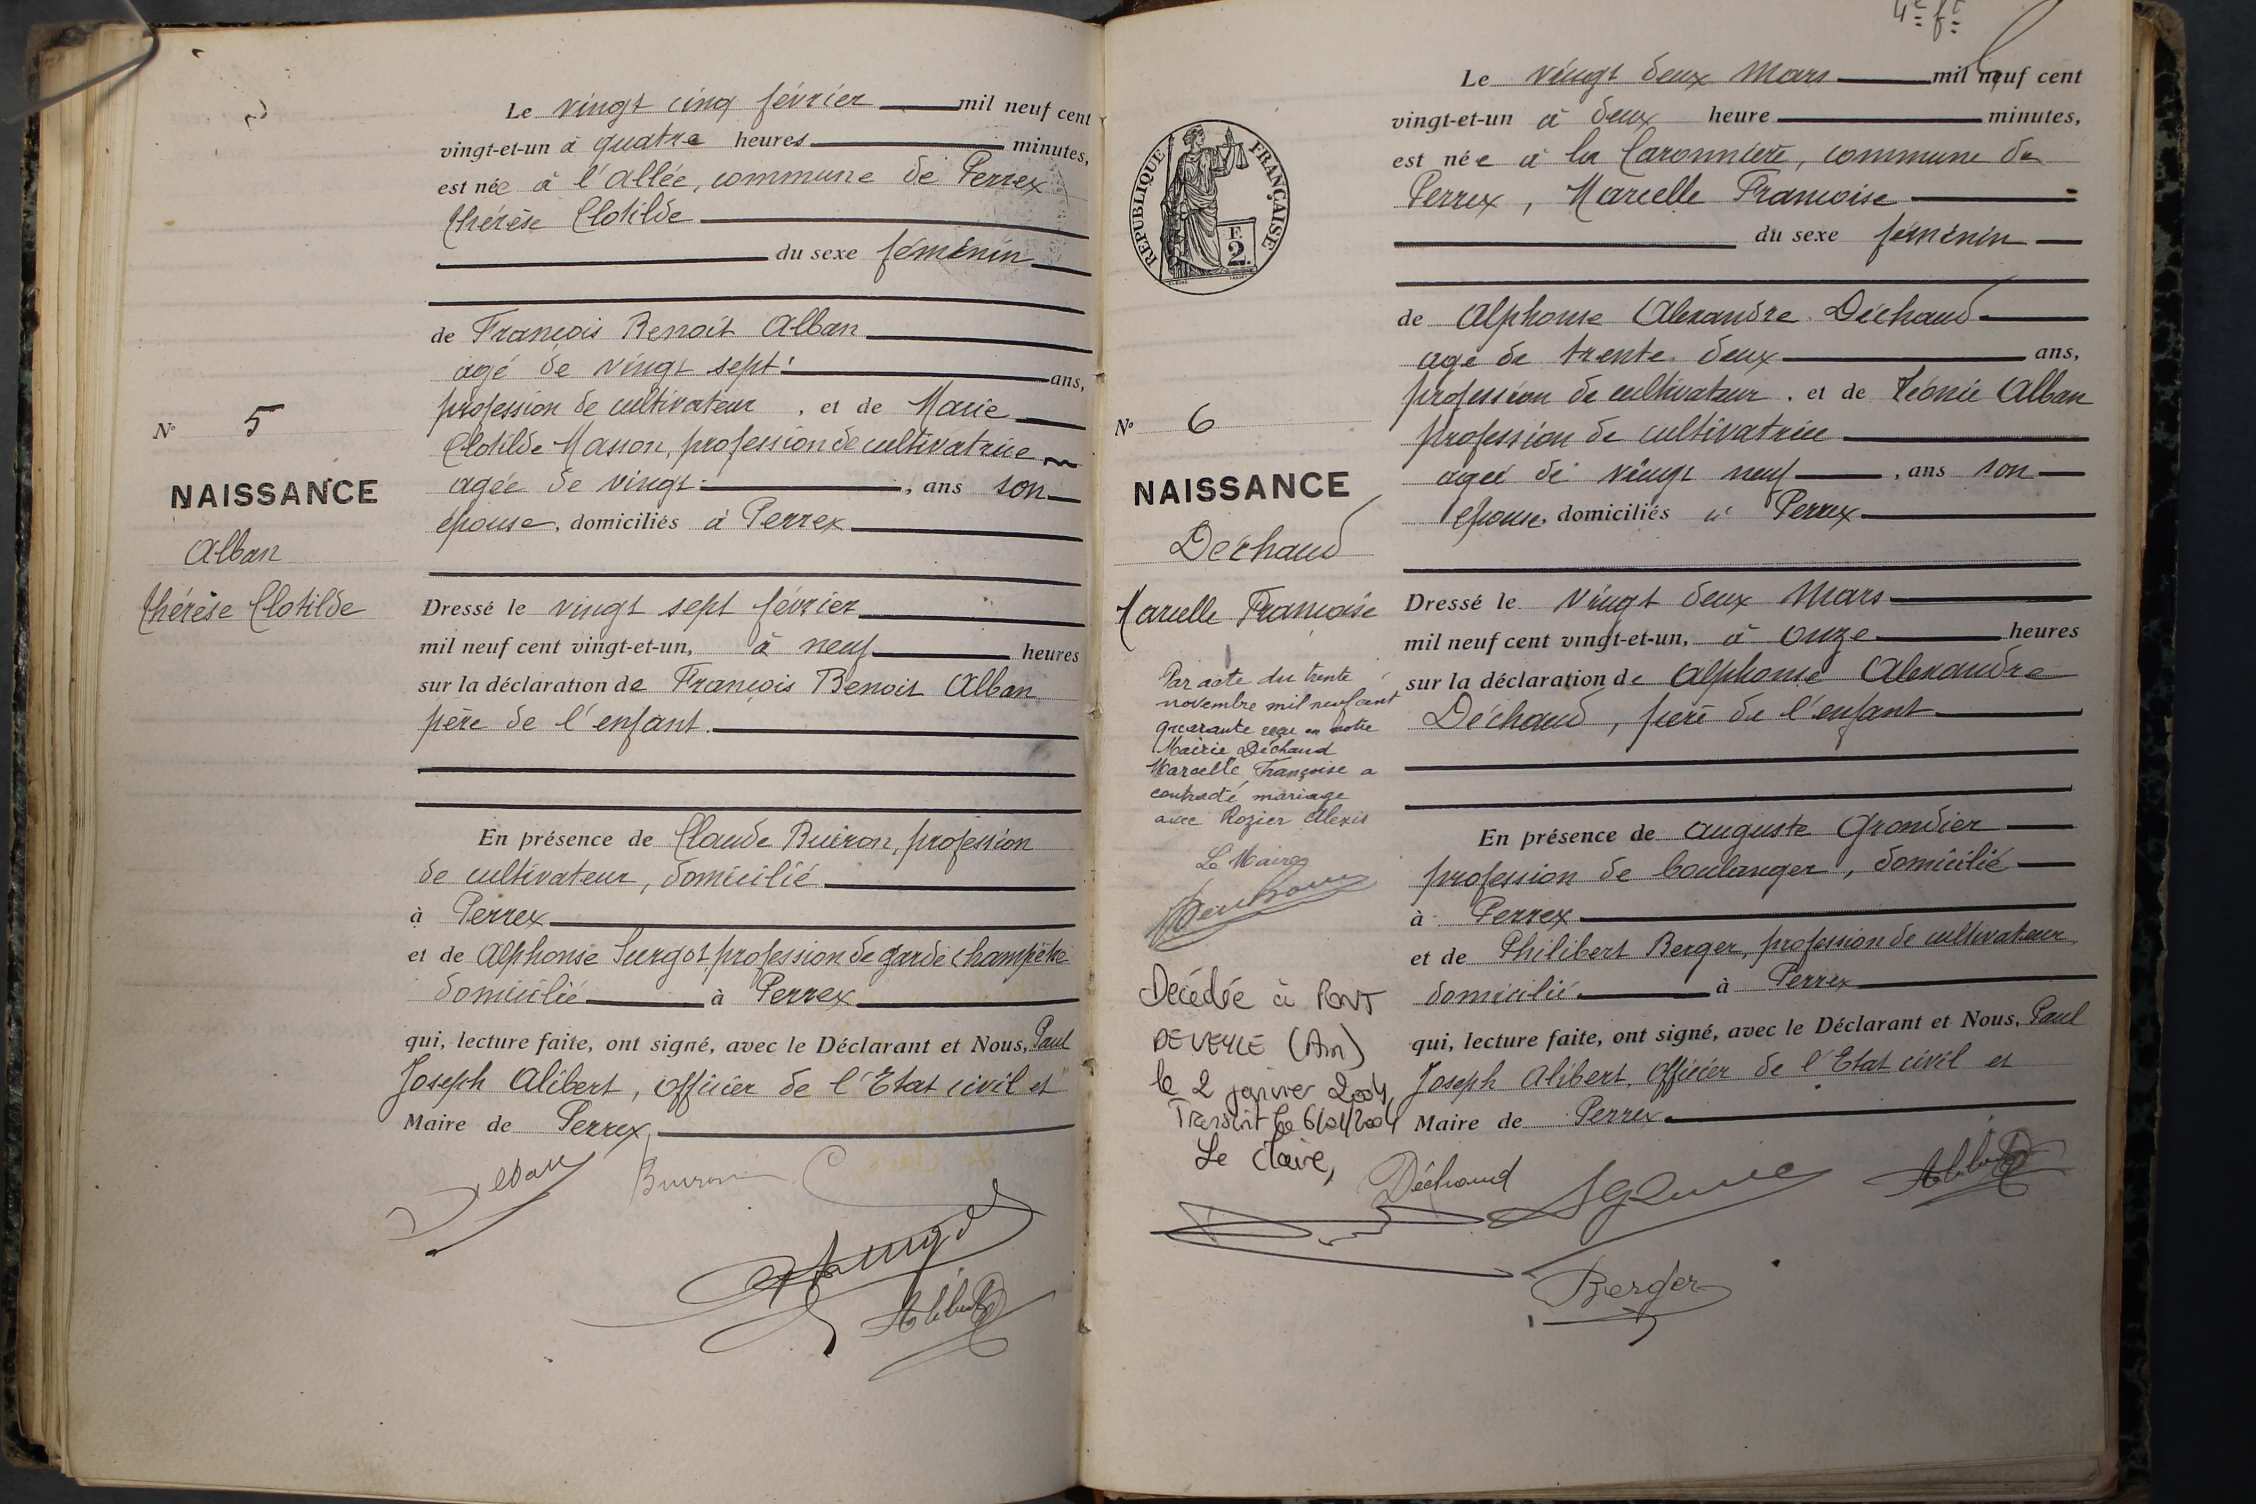 Le vingt cinq février mil neuf cent
vingt-et-un à quatre heures minutes,
est née à l'allée, commune de Perrex
Thérèse Clotilde
du sexe féminin
de François Benoit Alban
agé de vingt sept ans,
profession de cultivateur, et de Marie
Clotilde Masson, profession de cultivatrice
agée de vingt, ans son
épouse, domiciliés à Perrex
N° 5
NAISSANCE
Alban
Thérèse Clotilde
Dressé le vingt sept février
mil neuf cent vingt-et-un, à neuf heures
sur la déclaration de François Benoit Alban
père de l'enfant.
En présence de Claude Buiron, profession
de cultivateur, domicilié
à Perrex
et de Alphonse Surgot profession de garde champêtre
domicilié à Perrex
qui, lecture faite, ont signé, avec le Déclarant et Nous, Paul
Joseph Alibert, officier de l'Etat civil et
Maire de Perrex
Alban Buiron
Surgot
Alibert
4e ft
Le vingt deux Mars mil neuf cent
vingt-et-un à deux heure minutes,
est née à la Caronnière, commune de
Perrex, Marcelle Francoise
du sexe féminin
RÉPUBLIQUE FRANÇAISE
F.
2.
de Alphonse Alexandre Déchaud
agé de trente deux ans,
profession de cultivateur, et de Léonie Alban
profession de cultivatrice
agée de vingt neuf, ans son
épouse, domiciliés à Perrex
N° 6
NAISSANCE
Déchaud
Marcelle Francoise
Par acte du trente
novembre mil neuf cent
quarante reçu en notre
Mairie Déchaud
Marcelle Françoise a
contracté mariage
avec Rozier Alexis
Le Maire
Décédée à PONT
DE VEYLE (Ain)
le 2 janvier 2004,
Transcrit le 6/01/2004
Le Maire,
Dressé le vingt deux Mars
mil neuf cent vingt-et-un, à onze heures
sur la déclaration de Alphonse Alexandre
Déchaud, père de l'enfant
En présence de Auguste Grondier
profession de boulanger, domicilié
à Perrex
et de Philibert Berger, profession de cultivateur
domicilié à Perrex
qui, lecture faite, ont signé, avec le Déclarant et Nous, Paul
Joseph Alibert, officier de l'Etat civil et
Maire de Perrex
Déchaud Alibert
Berger